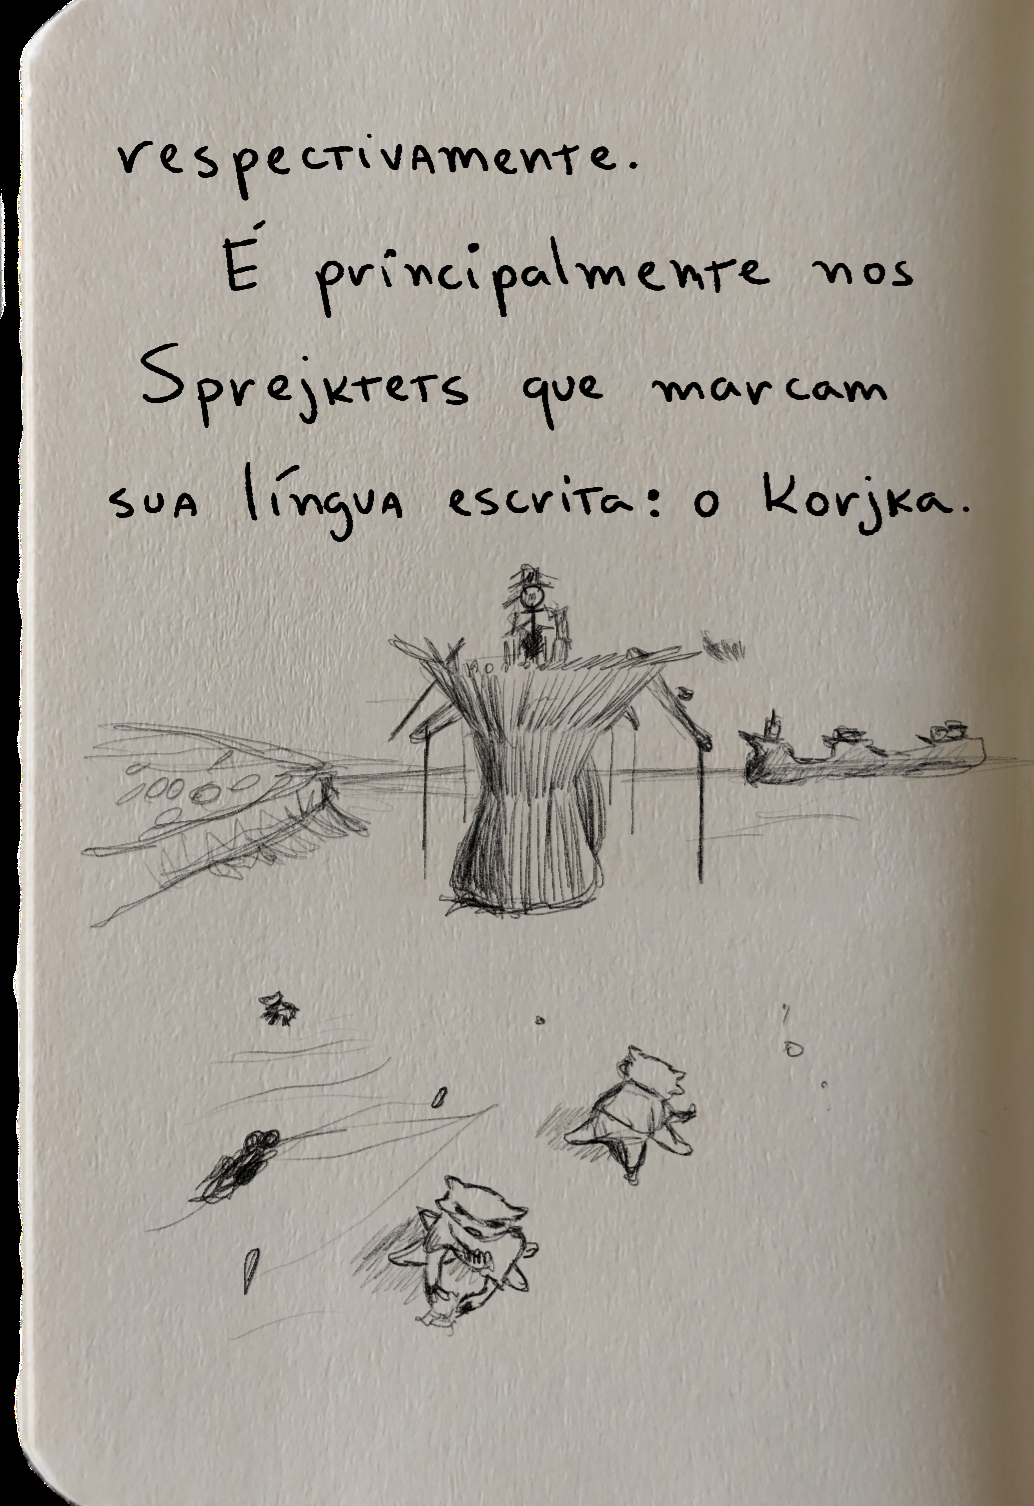 respectivamente.
É principalmente nos
Sprejktets que marcam
sua língua escrita: o Korjka.